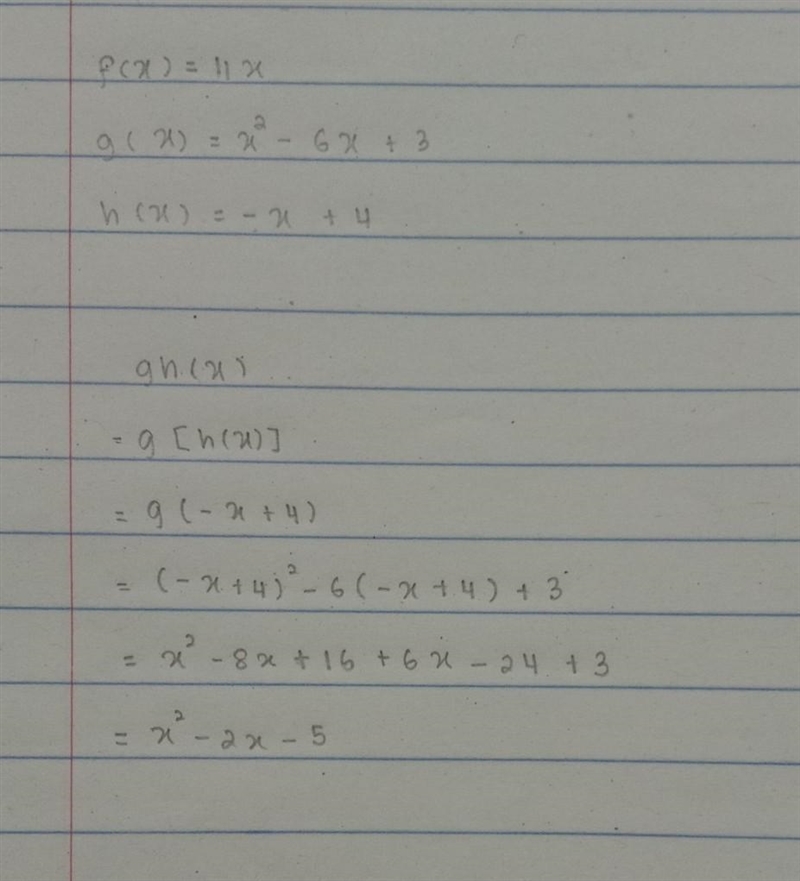 f(x) = 11x
g(x) = x² - 6x + 3
h(x) = -x + 4
gh(x)
= g [h(x)]
= g(-x+4)
= (-x+4)² - 6(-x+4) + 3
= x² - 8x + 16 + 6x - 24 + 3
= x² - 2x - 5